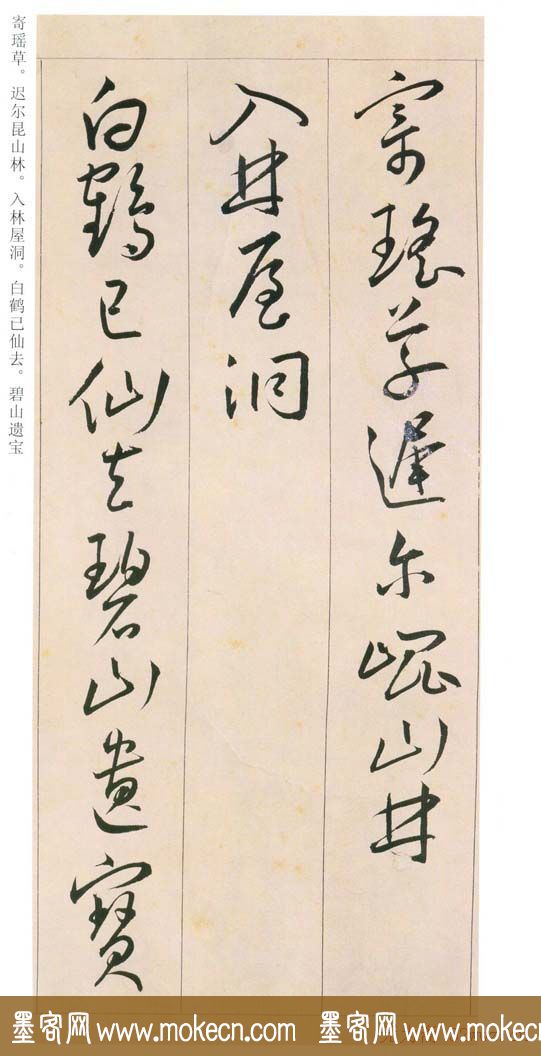 寄瑶草。迟尔昆山林。入林屋洞。白鹤已仙去。碧山遗宝
寄瑤草遲尔崐山林
入林屋洞
白鶴已仙去碧山遺寶
墨客网 www.mokecn.com 墨客网 www.mokecn.com